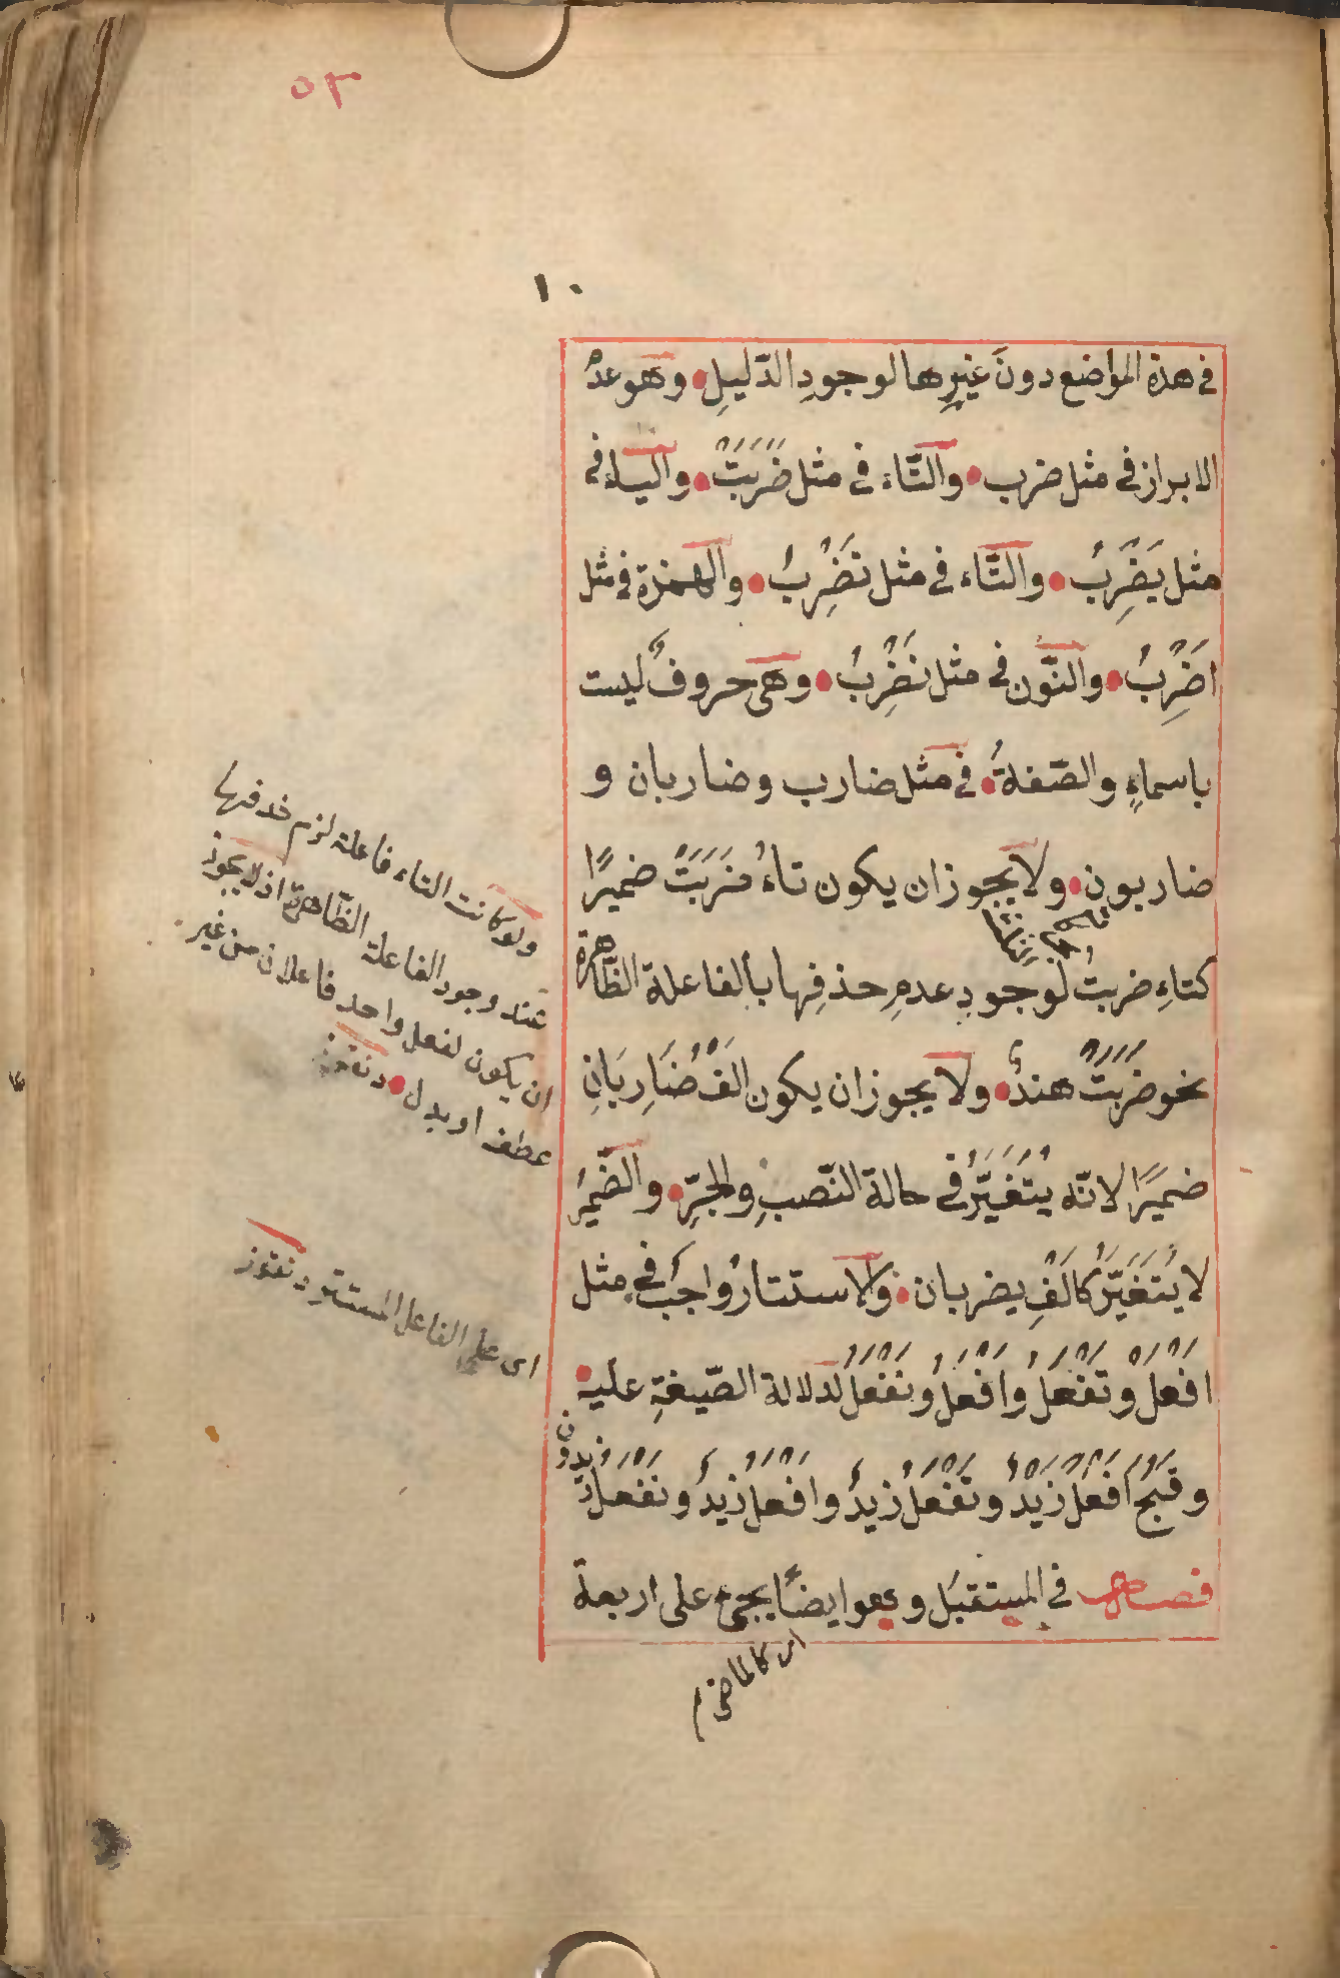 ٥٣
١٠
في هذه المواضع دونَ غيرِها لوجودِ الدّليلِ • وهو عدمُ
الابراز في مثل ضرب • والتّاء في مثل ضَرَبَتْ • والياء في
مثل يَضْرِبُ • والتّاء في مثل تَضْرِبُ • والهمزة في مثل
اَضْرِبُ • والنّون في مثل نَضْرِبُ • وهي حروفٌ ليست
باسماءٍ والصّفةُ • في مثل ضارب وضاربان و
ضاربون • ولا يجوز ان يكون تاءُ ضَرَبَتْ ضميرًا
كتاءِ ضربتُ لوجودِ عدمِ حذفِها بالفاعلة الظّاهرة
نحو ضَرَبَتْ هندٌ • ولا يجوز ان يكون الفُ ضَارِبَانِ
ضميرًا لانّه يَتَغَيَّرُ في حالة النّصبِ والجرِّ • والضّميرُ
لا يَتَغَيَّرُ كالَفِ يضربان • والاستتارُ واجبٌ في مثل
اِفْعَلْ وتَفْعَلُ واَفْعَلُ ونَفْعَلُ لدلالة الصّيغةِ عليه •
وقَبُحَ اِفْعَلْ زيدٌ وتَفْعَلُ زيدٌ واَفْعَلُ زيدٌ ونَفْعَلُ زيدون
فصل في المستقبَل وهو ايضًا يجئ على اربعة
ولو كانت التاء فاعلة لزم حذفها
عند وجود الفاعلة الظّاهرة اذ لا يجوز
ان يكون لفعل واحد فاعلان من غير
عطف او بدل •
اى على الفاعل المستتر
اى كالماضى